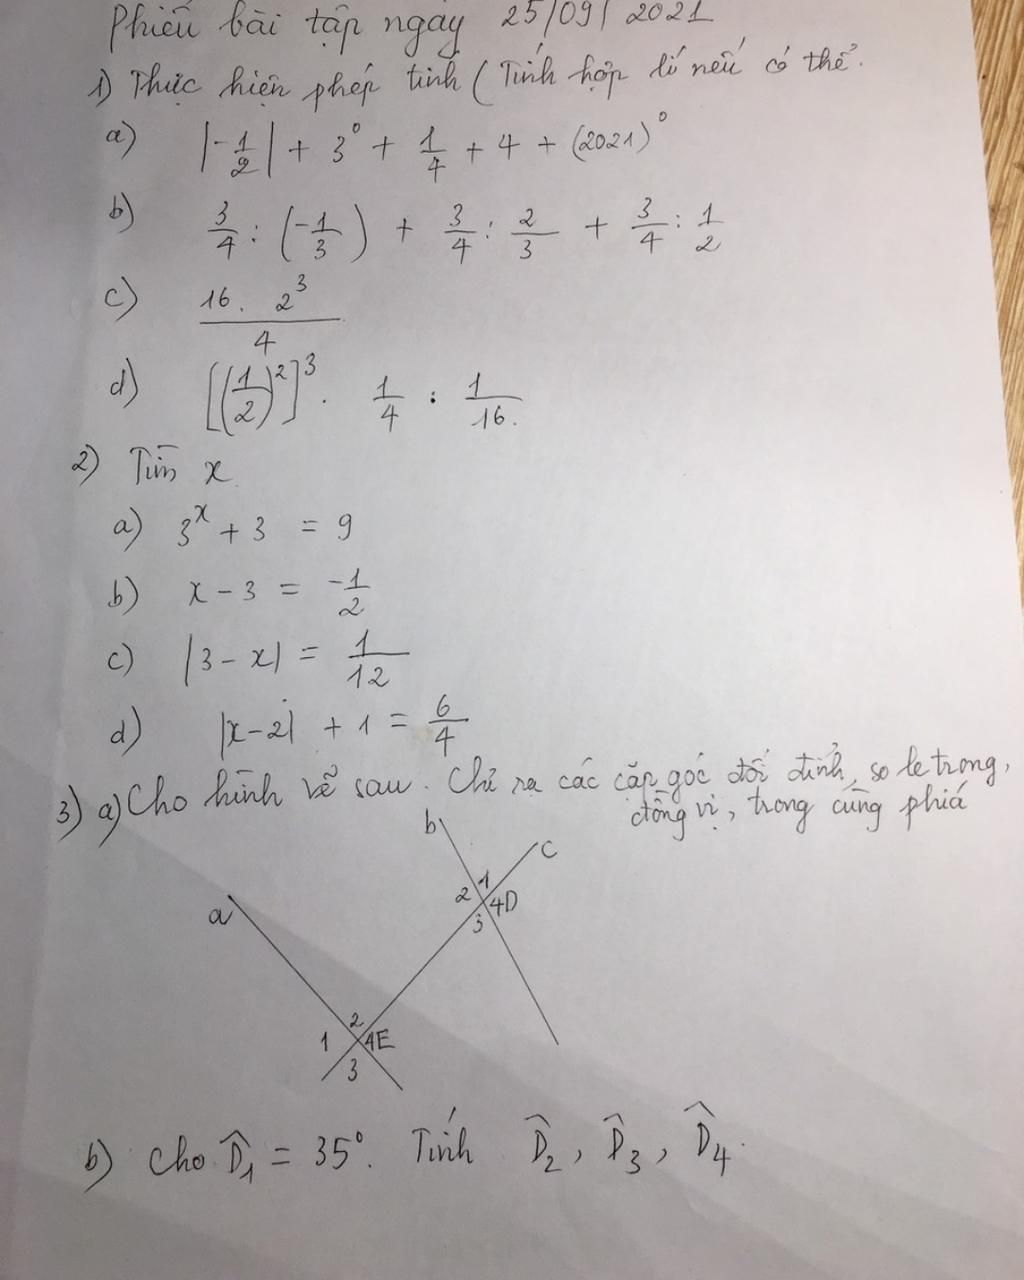 Phiếu bài tập ngày 25/09/2021
1) Thực hiện phép tính (Tính hợp lí nếu có thể.
a) |-1/2| + 3⁰ + 1/4 + 4 + (2021)⁰
b) 3/4 : (-1/3) + 3/4 : 2/3 + 3/4 : 1/2
c) 16 . 2³ / 4
d) [(1/2)²]³ . 1/4 : 1/16.
2) Tìm x
a) 3ˣ + 3 = 9
b) x - 3 = -1/2
c) |3 - x| = 1/12
d) |x - 2| + 1 = 6/4
3) a) Cho hình vẽ sau. Chỉ ra các cặp góc đối đỉnh, so le trong,
đồng vị, trong cùng phía
b
c
a
1
2 4D
3
2
1 4E
3
b) Cho D̂₁ = 35⁰. Tính D̂₂, D̂₃, D̂₄.